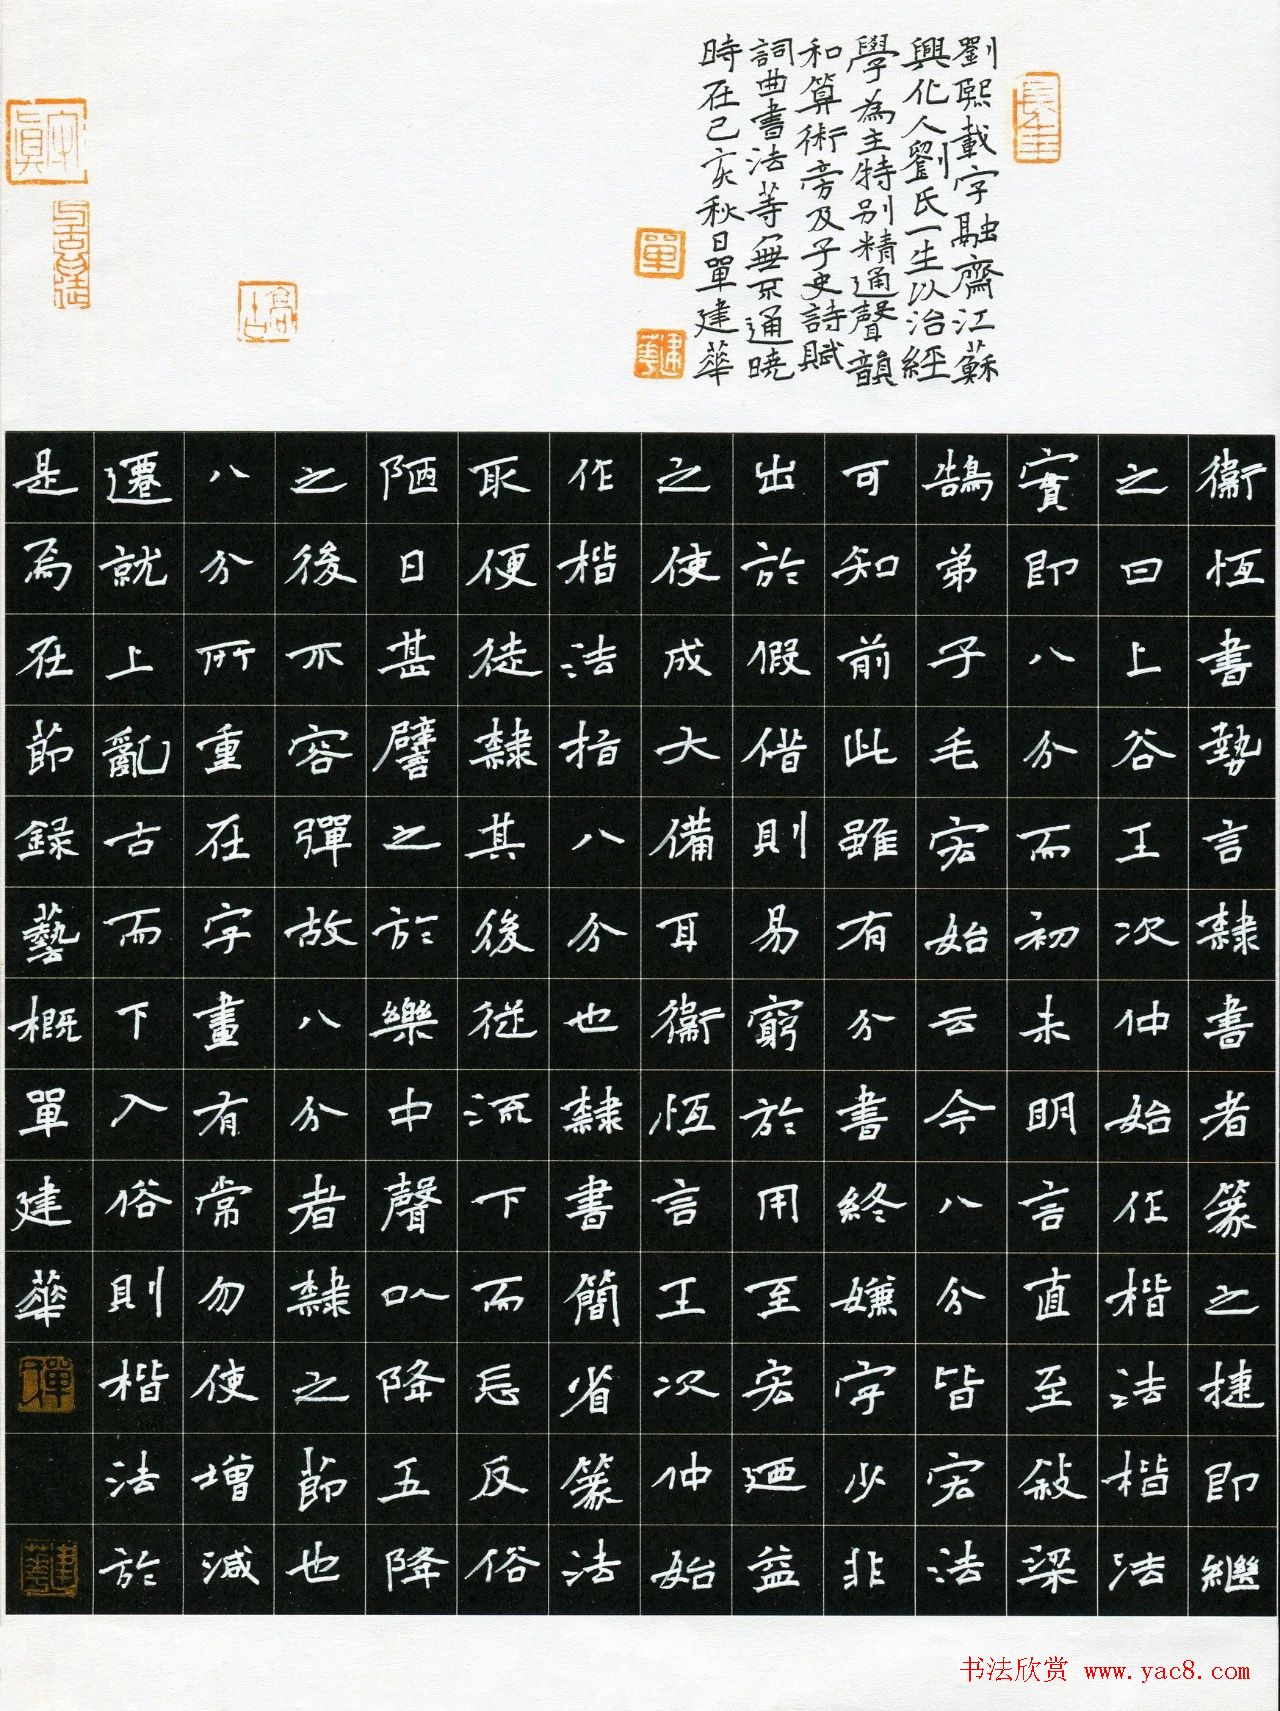 劉熙載字融齋江蘇
興化人劉氏一生以治經
學為主特别精通聲韻
和算術旁及子史詩賦
詞曲書法等無不通曉
時在己亥秋日單建華
長生
單
建華
衞恆書勢言隸書者篆之捷即繼
之曰上谷王次仲始作楷法楷法
實即八分而初未明言直至敘梁
鵠弟子毛宏始云今八分皆宏法
可知前此雖有分書終嫌字少非
出於假偕則易窮於用至宏迺益
之使成大備耳衞恆言王次仲始
作楷法指八分也隸書簡省篆法
取便徒隸其後從流下而忘反俗
陋日甚譬之於樂中聲以降五降
之後不容彈故八分者隸之節也
八分所重在字畫有常勿使增減
遷就上亂古而下入俗則楷法於
是焉在節録藝概單建華
建華
书法欣赏 www.yac8.com